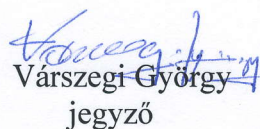 Várszegi György
jegyző